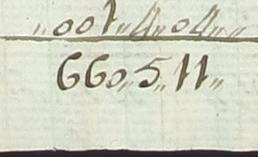 „001„4„04„„
660„5„11„